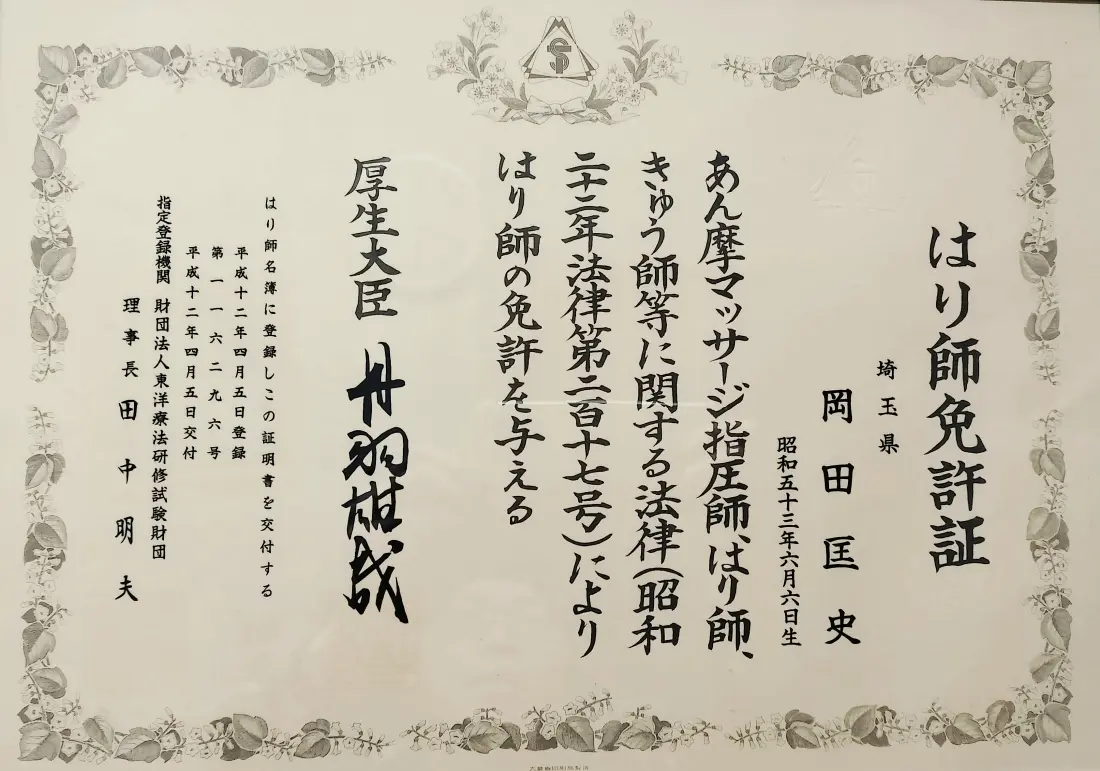 はり師免許証
埼玉県
岡田匡史
昭和五十三年六月六日生
あん摩マッサージ指圧師、はり師、
きゅう師等に関する法律(昭和
二十二年法律第二百十七号)により
はり師の免許を与える
厚生大臣 丹羽雄哉
はり師名簿に登録しこの証明書を交付する
平成十二年四月五日登録
第一一六二九六号
平成十二年四月五日交付
指定登録機関 財団法人東洋療法研修試験財団
理事長 田中明夫